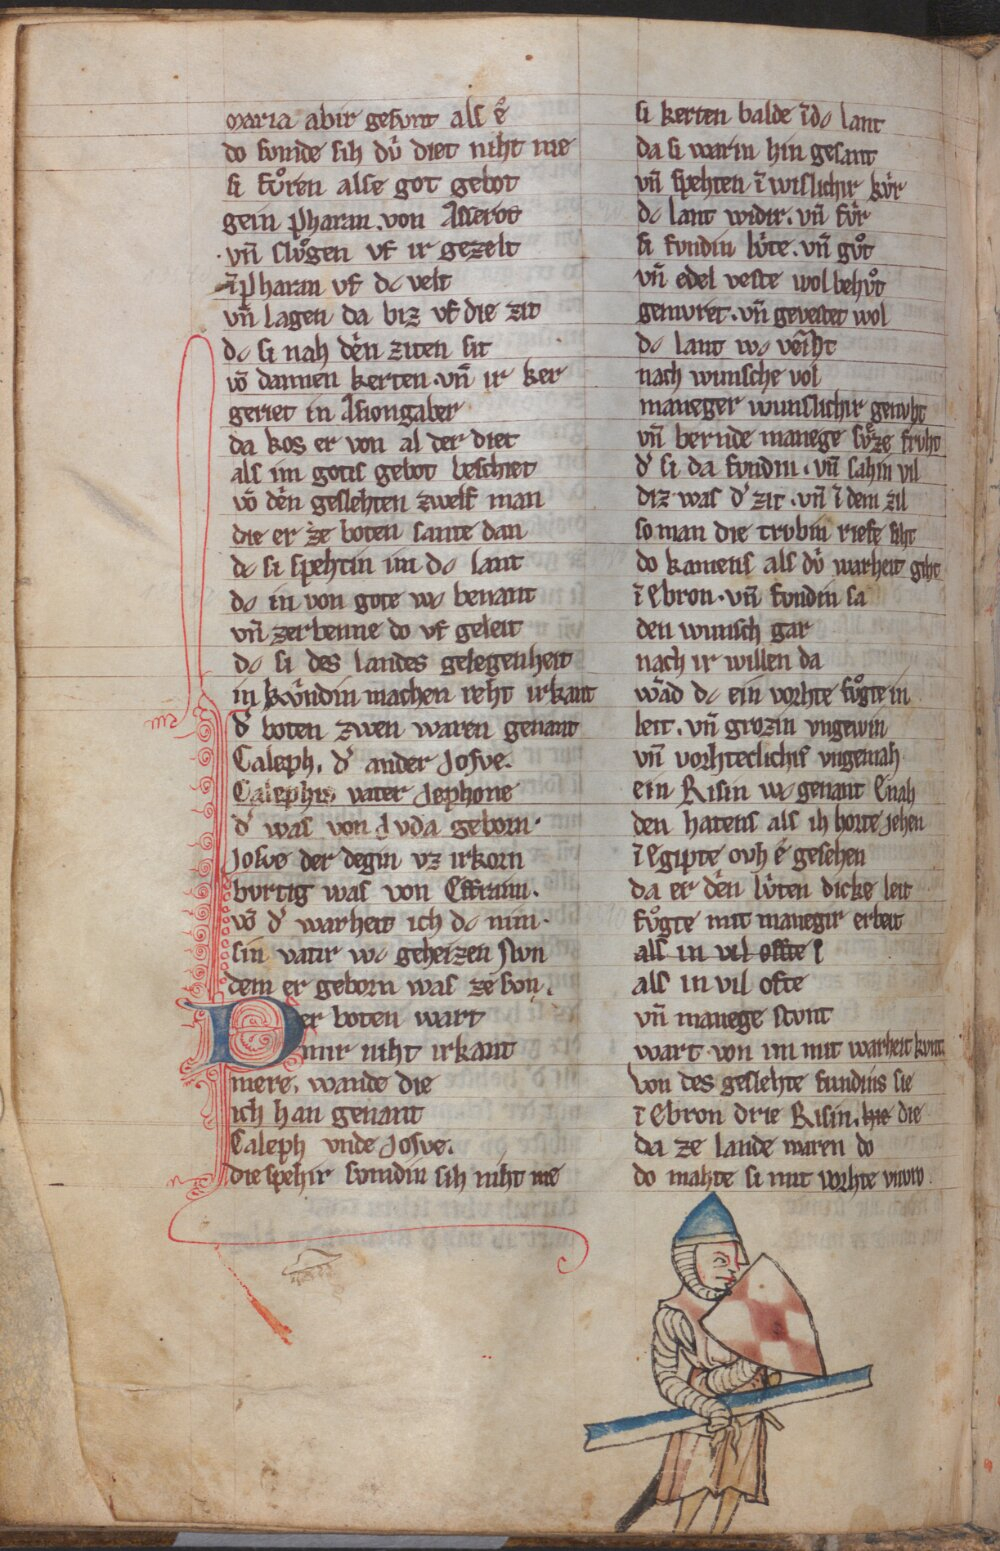 maria abir gesunt als e͛
do sumde sih dv̓ diet niht me
si fv̊ren alse got gebot
gein pharan. von Asserot
vn̄ slv̊gen vf ir gezelt
ī pharan vf dc velt
vn̄ lagen da biz vf die zit
dc si nah de͛n ziten sit
vō dannen kerten. vn̄ ir ker
geriet in Asiongaber
da kos er von al der diet
als im gotis gebot beschiet
vō de͛n geslehten zwelf man
die er ze͛ boten sante dan
dc si spehtin im dc lant
dc in von gote wc benant
vn̄ zerbenne do vf geleit
dc si des landes gelegenheit
in kv̓ndin machen reht irkant
d͛ boten zwen waren genant
Caleph. d͛ ander Josve.
Calephis vater Jephone
d͛ was von Jvda geborn.
Josve der degin vz irkorn
bvrtig was von Effraim.
vō d͛ warheit ich dc nim.
sin vatir wc geheizen Nvn
dem er geborn was ze svn.
Der boten wart
mir niht irkant
mere. wande die
ich han genant
Caleph vnde Josve.
die spehir svmdin sih niht me
si kerten balde īdc lant
da si warin hin gesant
vn̄ spehten ī wislichir kv̓r
dc lant widir. vn̄ fv̓r
si fvndin lv̓te. vn̄ gv̊t
vn̄ edel veste wol behv̊t
gemvret. vn̄ gevestet wol
dc lant wc vō iht
nach wunsche vol
maneger wunslichir genvht
vn̄ bernde manege sv̊ze frvht
d͛ si da fvndin. vn̄ sahin vil
diz was d͛ zit. vn̄ ī dem zil
so man die trvbin riefe siht
do kamens als dv̓ warheit giht
ī Ebron. vn̄ fvndin sa
den wunsch gar
nach ir willen da
wād dc ein vorhte fv̊gte in
leit. vn̄ grozin vngewin
vn̄ vorhteclichis vngemah
ein Risin wc genant Enah
den hatens als ih horte jehen
ī Egipte ovh e͛ gesehen
da er de͛n lv̓ten dicke leit
fv̊gte mit manegir erbeit
als in vil offte
als in vil ofte
vn̄ manege stvnt
wart von im mit warheit kvnt
von des geslehte fundins sie
ī Ebron drie Risin. hie die
da ze lande waren do
do mahte si mit vorhte vnvro.